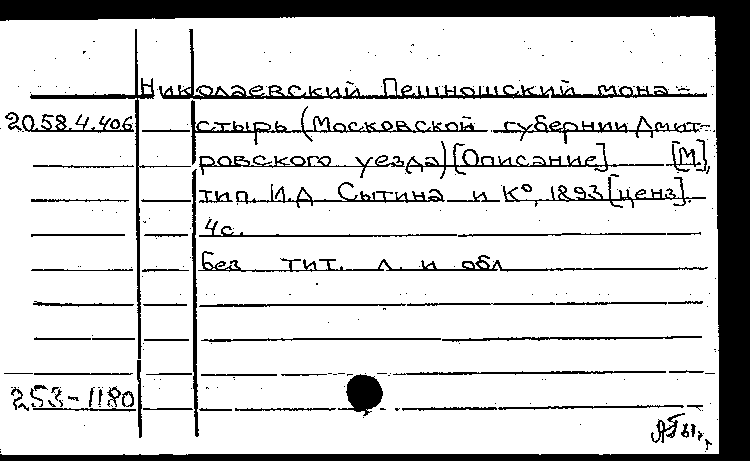 Николаевский Пешношский мона-
20.58.4.406 стырь (Московской губернии Дмит-
ровского уезда) [Описание]. [М.],
тип. И.Д. Сытина и К°, 1893 [ценз].
4с.
Без тит. л. и обл
253-1180